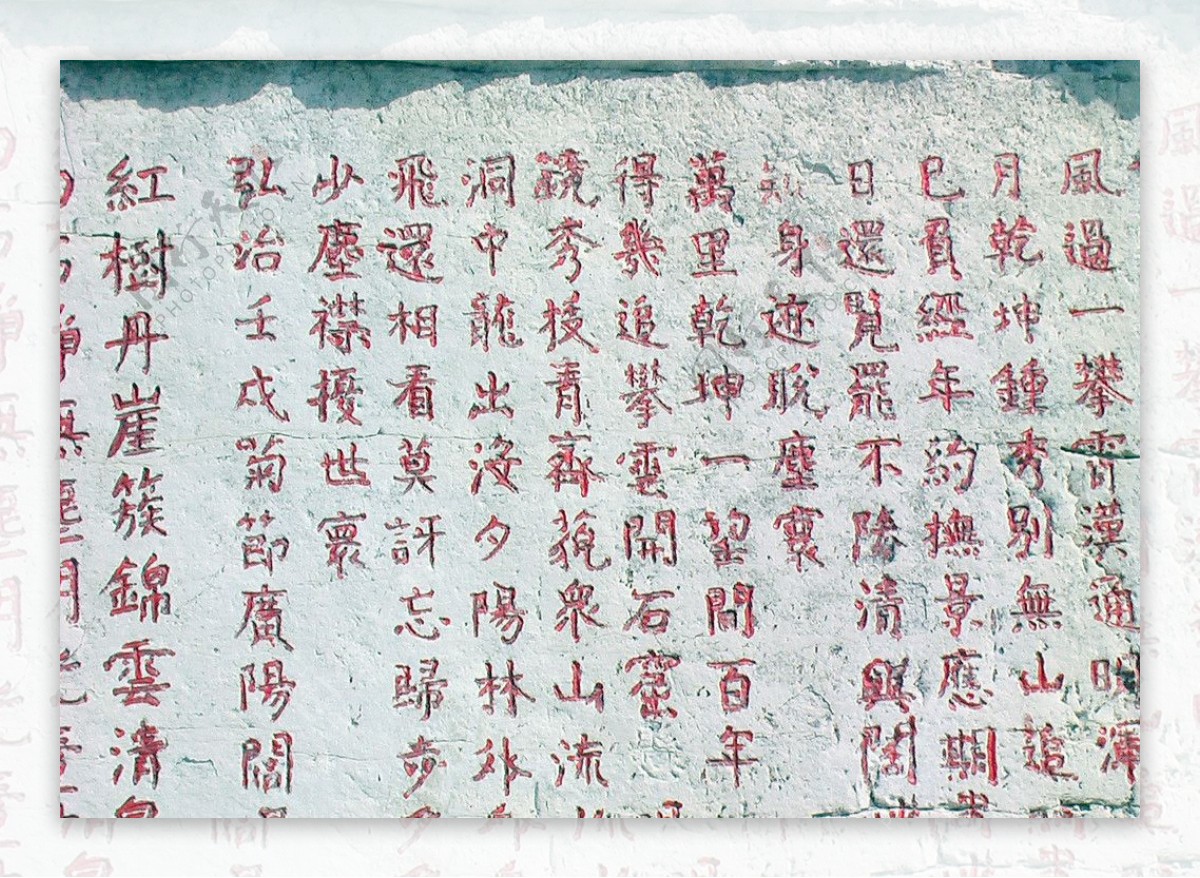 風過一攀霄漢通明渾
月乾坤鍾秀別無山追
已負經年約撫景應期
日還覽罷不陵清興闊
身迹脫塵寰
萬里乾坤一望間百年
得幾追攀雲開石窟
秀披青齊藐眾山流
洞中龍出浴夕陽林外
飛還相看莫訝忘歸步
少塵襟擾世寰
弘治壬戌菊節廣陽閻
紅樹丹崖簇錦雲清